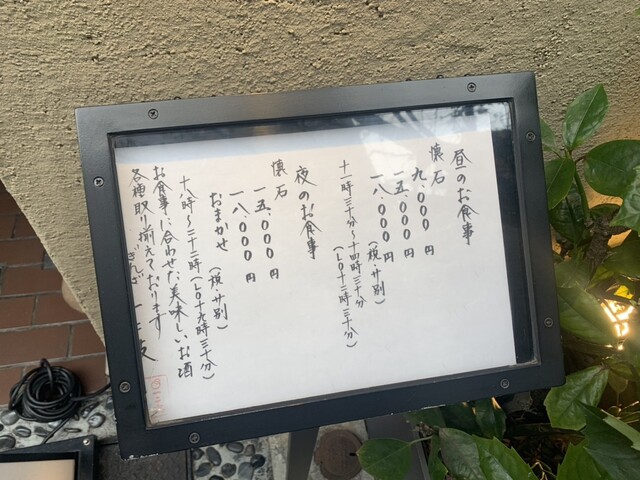 昼のお食事
懐石
九.000円
一五.000円
一八.000円
(税サ別)
十一時三十分〜十四時三十分
(LO十三時三十分)
夜のお食事
懐石
一五.000円
一八.000円
おまかせ
(税サ別)
十八時〜二十二時(LO十九時三十分)
お食事に合わせた美味しいお酒
各種取り揃えております
ぎんざ